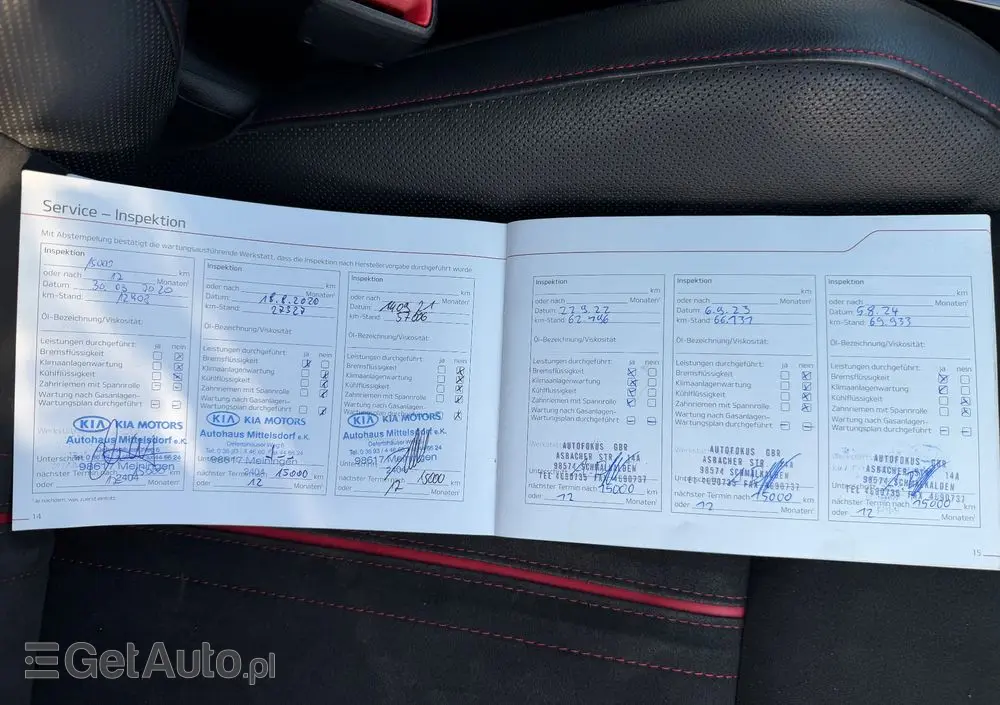 Service – Inspektion
Mit Abstempelung bestätigt die wartungsausführende Werkstatt, dass die Inspektion nach Herstellervorgabe durchgeführt wurde.
Inspektion
15000 km
oder nach 12 Monaten¹
Datum: 30.03.2020
km-Stand: 12402
Öl-Bezeichnung/Viskosität:
Leistungen durchgeführt: ja nein
Bremsflüssigkeit
Klimaanlagenwartung
Kühlflüssigkeit
Zahnriemen mit Spannrolle
Wartung nach Gasanlagen-
Wartungsplan durchgeführt
KIA KIA MOTORS
Autohaus Mittelsdorf e.K.
98617 Meiningen
nächster Termin nach km
2404
12
¹ je nachdem, was zuerst eintritt
14
Inspektion
km
oder nach Monaten¹
Datum: 18.8.2020
km-Stand: 27327
Öl-Bezeichnung/Viskosität:
Leistungen durchgeführt: ja nein
Bremsflüssigkeit
Klimaanlagenwartung
Kühlflüssigkeit
Zahnriemen mit Spannrolle
Wartung nach Gasanlagen-
Wartungsplan durchgeführt
KIA KIA MOTORS
Autohaus Mittelsdorf e.K.
98617 Meiningen
2404
nächster Termin nach 15000 km
oder 12 Monaten¹
Inspektion
km
oder nach Monaten¹
Datum:
km-Stand: 57606
Öl-Bezeichnung/Viskosität:
Leistungen durchgeführt: ja nein
Bremsflüssigkeit
Klimaanlagenwartung
Kühlflüssigkeit
Zahnriemen mit Spannrolle
Wartung nach Gasanlagen-
Wartungsplan durchgeführt
KIA KIA MOTORS
Autohaus Mittelsdorf e.K.
98617 Meiningen
2404
nächster Termin nach 15000 km
oder 12 Monaten¹
Inspektion
km
oder nach Monaten¹
Datum: 22.9.22
km-Stand: 62.196
Öl-Bezeichnung/Viskosität:
Leistungen durchgeführt: ja nein
Bremsflüssigkeit
Klimaanlagenwartung
Kühlflüssigkeit
Zahnriemen mit Spannrolle
Wartung nach Gasanlagen-
Wartungsplan durchgeführt
AUTOFOKUS GBR
ASBACHER STR. 14A
98574 SCHMALKALDEN
TEL 4690735 FAX 4690737
nächster Termin nach 15000 km
oder 12 Monaten¹
Inspektion
km
oder nach Monaten¹
Datum: 6.9.23
km-Stand: 66.131
Öl-Bezeichnung/Viskosität:
Leistungen durchgeführt: ja nein
Bremsflüssigkeit
Klimaanlagenwartung
Kühlflüssigkeit
Zahnriemen mit Spannrolle
Wartung nach Gasanlagen-
Wartungsplan durchgeführt
AUTOFOKUS GBR
ASBACHER STR. 14A
98574 SCHMALKALDEN
TEL 4690735 FAX 4690737
nächster Termin nach 15000 km
oder 12 Monaten¹
Inspektion
km
oder nach Monaten¹
Datum: 5.8.24
km-Stand: 69.933
Öl-Bezeichnung/Viskosität:
Leistungen durchgeführt: ja nein
Bremsflüssigkeit
Klimaanlagenwartung
Kühlflüssigkeit
Zahnriemen mit Spannrolle
Wartung nach Gasanlagen-
Wartungsplan durchgeführt
AUTOFOKUS GBR
ASBACHER STR. 14A
98574 SCHMALKALDEN
TEL 4690735 FAX 4690737
nächster Termin nach 15000 km
oder 12 Monaten¹
15
GetAuto.pl